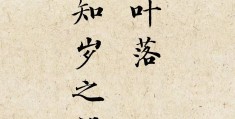 叶落
知岁之